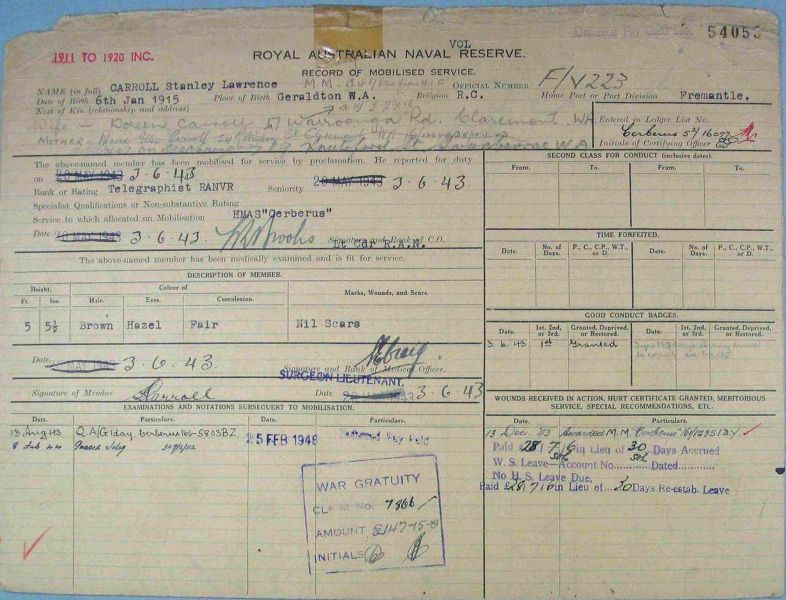 Deferred Pay Card No. 54055
1911 TO 1920 INC.
VOL
ROYAL AUSTRALIAN NAVAL RESERVE.
RECORD OF MOBILISED SERVICE.
NAME (in full) CARROLL Stanley Lawrence M.M. OFFICIAL NUMBER F/V223
Date of Birth 6th Jan 1915 Place of Birth Geraldton W.A. Religion R.C. Home Port or Port Division Fremantle.
Next of Kin (relationship and address)
Wife - Doreen Carroll 57 Waroonga Rd. Claremont. WA
Mother - Carroll 54 St Claremont WA
Swanbourne W.A
Entered in Ledger List No.
Cerberus
Initials of Certifying Officer
The above-named member has been mobilised for service by proclamation. He reported for duty
on 20 MAY 1943 3.6.43
Rank or Rating Telegraphist RANVR Seniority 20 MAY 1943 3.6.43.
Specialist Qualifications or Non-substantive Rating
Service to which allocated on Mobilisation HMAS "Cerberus"
Date 20 MAY 1943 3.6.43. Signature and Rank of C.O.
Lt Cdr R.A.N.
The above-named member has been medically examined and is fit for service.
DESCRIPTION OF MEMBER.
Height. Colour of Marks, Wounds, and Scars.
Ft. Ins. Hair. Eyes. Complexion.
5 5½ Brown Hazel Fair Nil Scars
Date MAY 1943 3.6.43 Signature and Rank of Medical Officer.
SURGEON LIEUTENANT.
Signature of Member Carroll Date 3.6.43
EXAMINATIONS AND NOTATIONS SUBSEQUENT TO MOBILISATION.
Date. Particulars. Date. Particulars.
13 Aug 43 Q.A/G1day. Cerberus 5803BZ. 25 FEB 1946 Deferred Pay Paid
8 Feb 44
WAR GRATUITY
CLAIM NO. 7866
AMOUNT £147-15-0
INITIALS
SECOND CLASS FOR CONDUCT (inclusive dates).
From. To. From. To.
TIME FORFEITED.
Date. No. of Days. P., C., C.P., W.T., or D. Date. No. of Days. P., C., C.P., W.T., or D.
GOOD CONDUCT BADGES.
Date. 1st, 2nd, or 3rd. Granted, Deprived, or Restored. Date. 1st, 2nd or 3rd. Granted, Deprived or Restored.
3.6.43 1st Granted
WOUNDS RECEIVED IN ACTION, HURT CERTIFICATE GRANTED, MERITORIOUS
SERVICE, SPECIAL RECOMMENDATIONS, ETC.
Date. Particulars.
13 Dec 43 Awarded M.M. "Cerberus"
Paid £28/7/6 in Lieu of 30 Days Accrued
W. S. Leave—Account No. Dated
No H.S. Leave Due.
Paid £28/7/6 in Lieu of 30 Days Re-estab. Leave